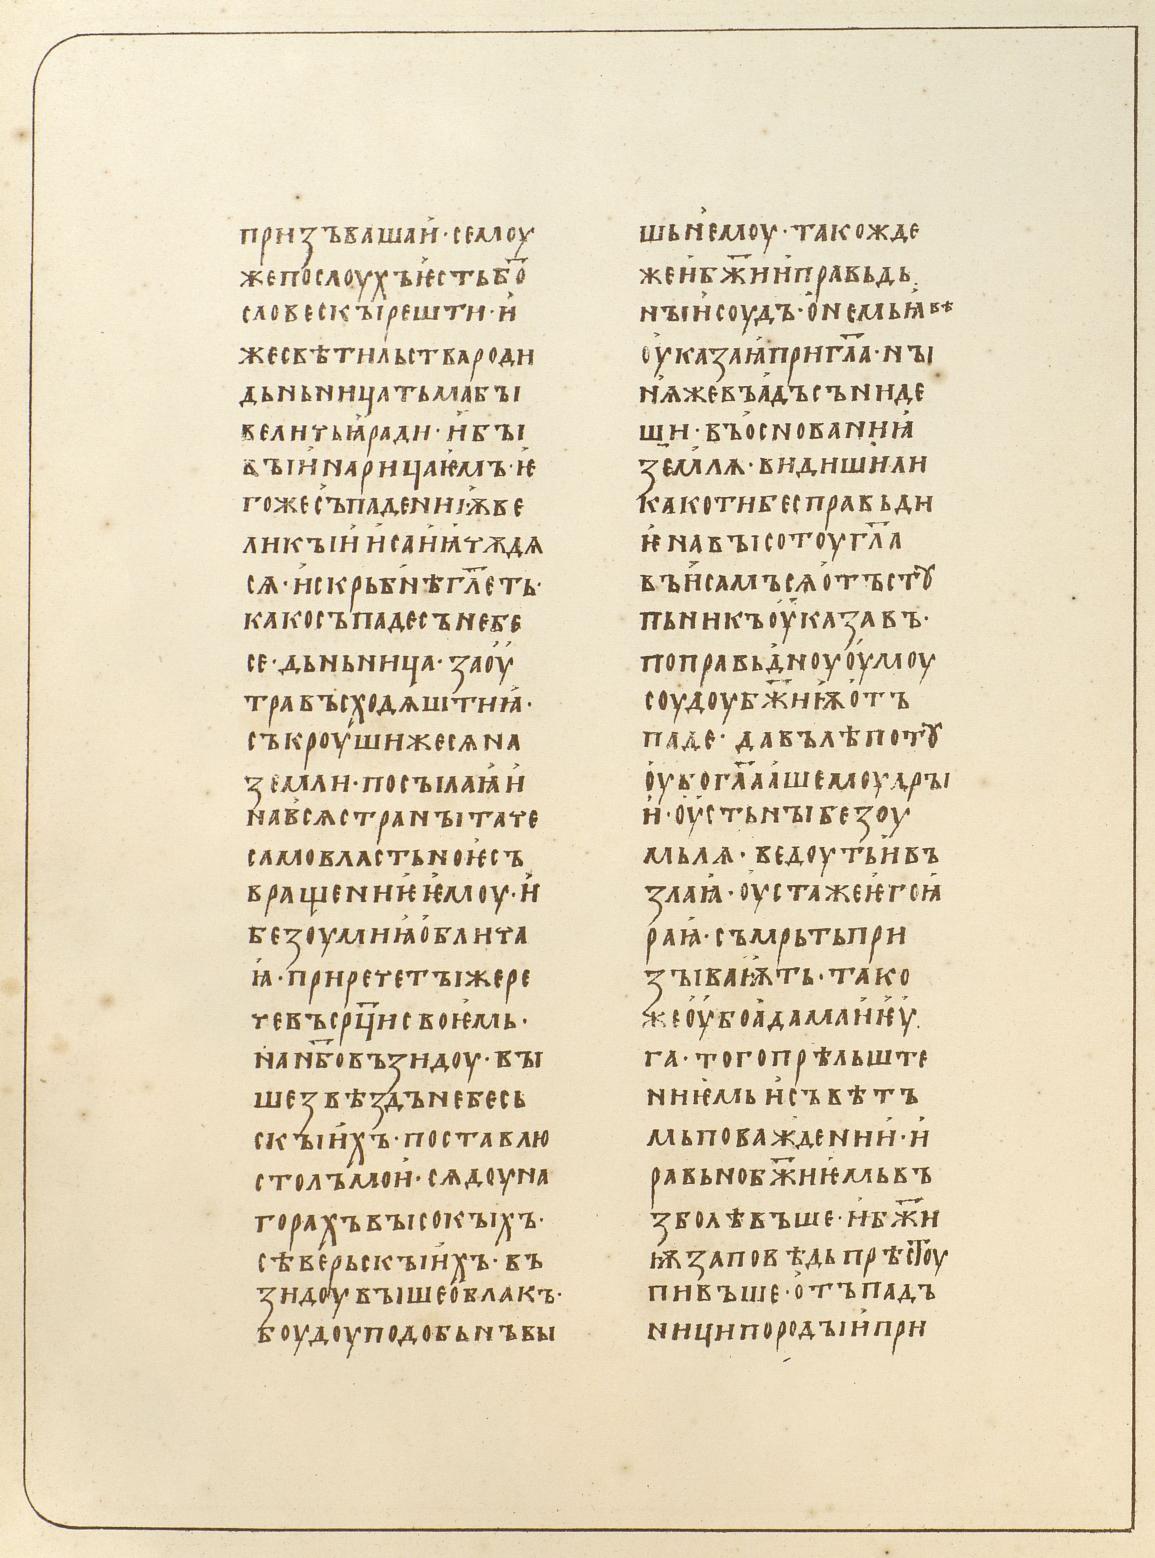 призъвашаи҆·семоу
жепослоухъѥ҆стьбо҃
словескъірешти·и҆
жесвѣтильствароди
дьньницатьмабъі
велитьꙗ҆ради·и҆бъі
въіи҆нарицаѥ҆мъ·ѥ҆
гожесъпадениꙗ҆ве
ликъіи҆и҆саи҆ꙗ҆тѫдѧ
сѧ·и҆скрьбнѣгл҃еть·
какосъпадесънебе
се·дьньница·заоу҆
травъсходѧштиꙗ҆·
съкроу҆шижесѧна
земли·посъілаꙗ҆и҆
навсѧстранъітаче
самовластьноѥ҆съ
вращениѥ҆ѥ҆моу·и҆
безоу҆миꙗ҆о҆блича
ꙗ҆·приречетъіжере
чевъсрц҃исвоѥ҆мь·
нанб҃овъзидоу·въі
шезвѣздънебесь
скъіи҆хъ·поставлю
столъмои҆·сѧдоуна
горахъвъісокъіхъ·
сѣверьскъіи҆хъ·въ
зидоувъішео҆блакъ·
боудоуподобьнъвы
шьнѥ҆моу·такожде
жеи҆бж҃ии҆и҆правьдь
нъіи҆соудъ·о҆немьꙗ҆вѣ
оу҆казаꙗ҆пригл҃а·нъі
нꙗ҆жевъа҆дъсъниде
щи·въо҆снованиꙗ҆
землѧ·видишили
какотибесправьди
ѥ҆навъісотоугл҃а
въи҆самъсѧо҆тъстꙋ
пьникъоу҆казавъ·
поправьдноуоу҆моу
соудоубж҃иѭ҆о҆тъ
паде·давълѣпотꙋ
оу҆богл҃аа҆шемоудръі
и҆·оу҆стьнъібезоу
мьлѧ·ведоутьи҆въ
злаꙗ҆·оу҆стажеѥ҆гоꙗ҆
раꙗ҆·съмрьтьпри
зъіваѭ҆ть·тако
жеоу҆боа҆дамли҆ѥ҆ѵ҆
га·тогопрѣльште
ниѥ҆мьи҆съвѣтъ
мьповаждении҆·и҆
равьнобж҃иѥ҆мьвъ
зболѣвъше·и҆бж҃и
ѭ҆заповѣдьпрѣстоу
пивъше·о҆тъпадъ
ниципородъіи҆при